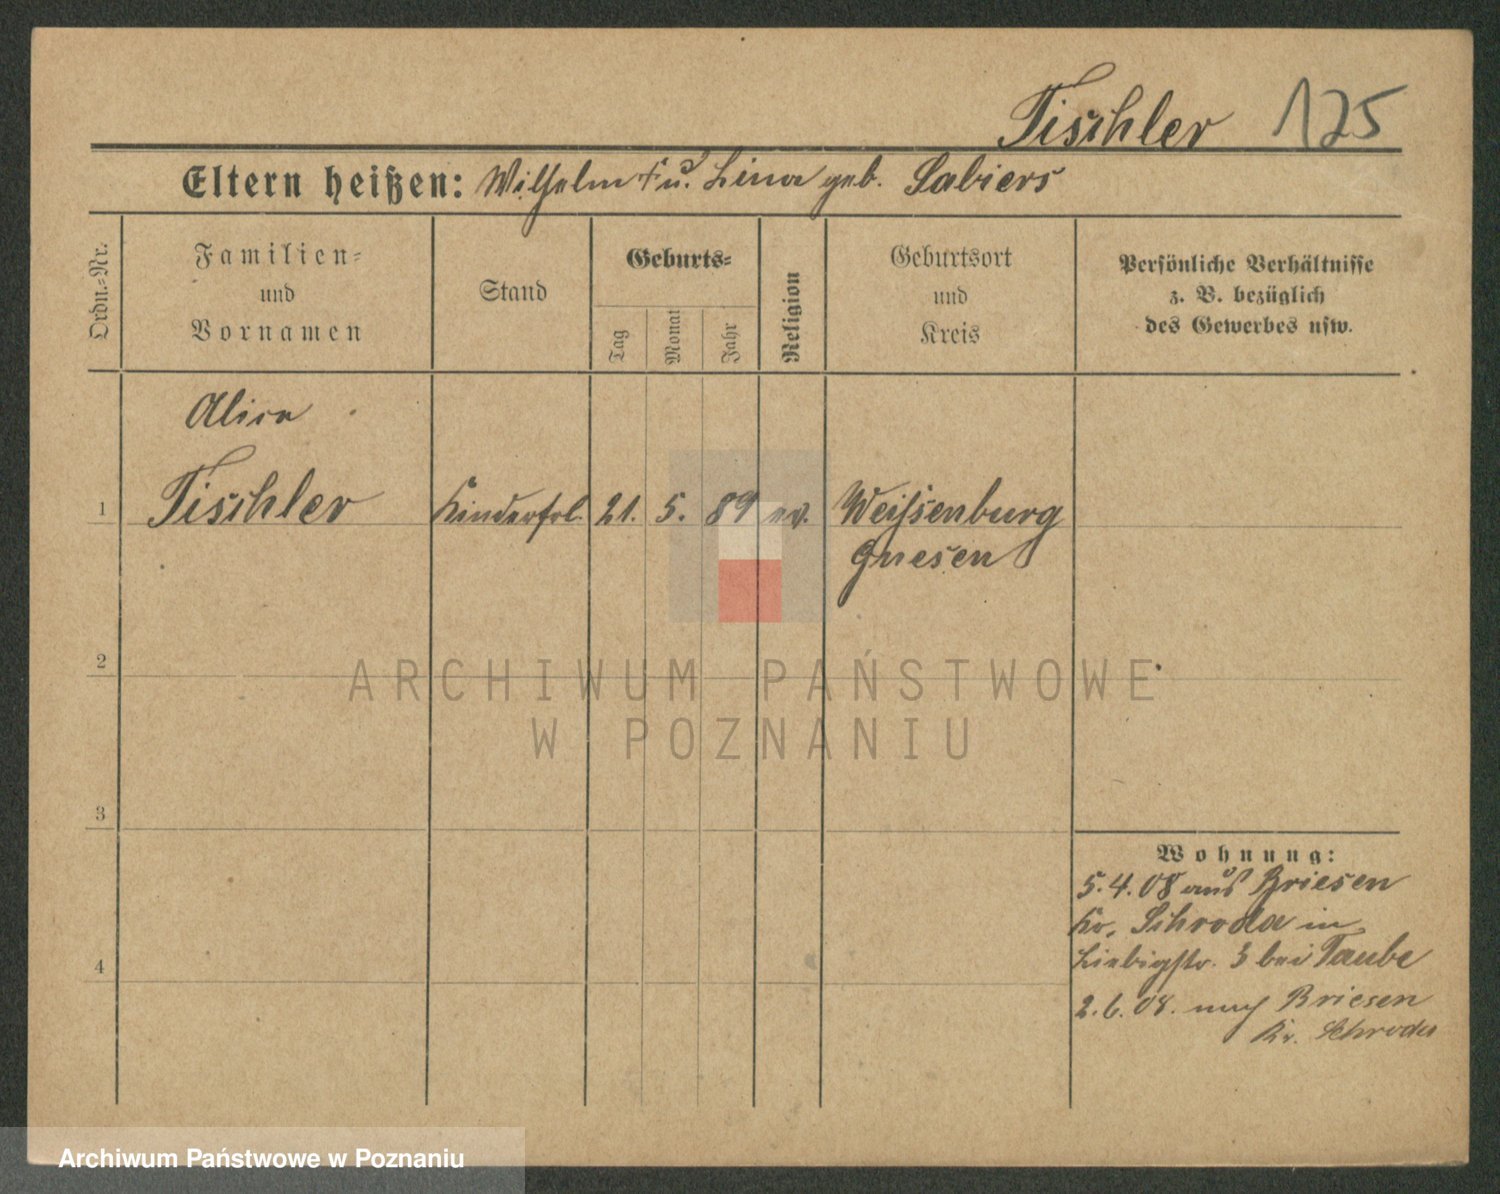 Tischler 125
Eltern heißen: Wilhelm † u. Lina geb. Sabiers
Ordn.-Nr.
Familien-
und
Vornamen
Stand
Geburts-
Tag
Monat
Jahr
Religion
Geburtsort
und
Kreis
Persönliche Verhältnisse
z. B. bezüglich
des Gewerbes usw.
Alice
1 Tischler Kinderfrl. 21. 5. 89 ev. Weißenburg
Gnesen
2
3
4
Wohnung:
5.4.08 aus Briesen
Kr. Schroda in
Liebigstr. 3 bei Taube
2.6.08. nach Briesen
Kr. Schroda
ARCHIWUM PAŃSTWOWE
W POZNANIU
Archiwum Państwowe w Poznaniu